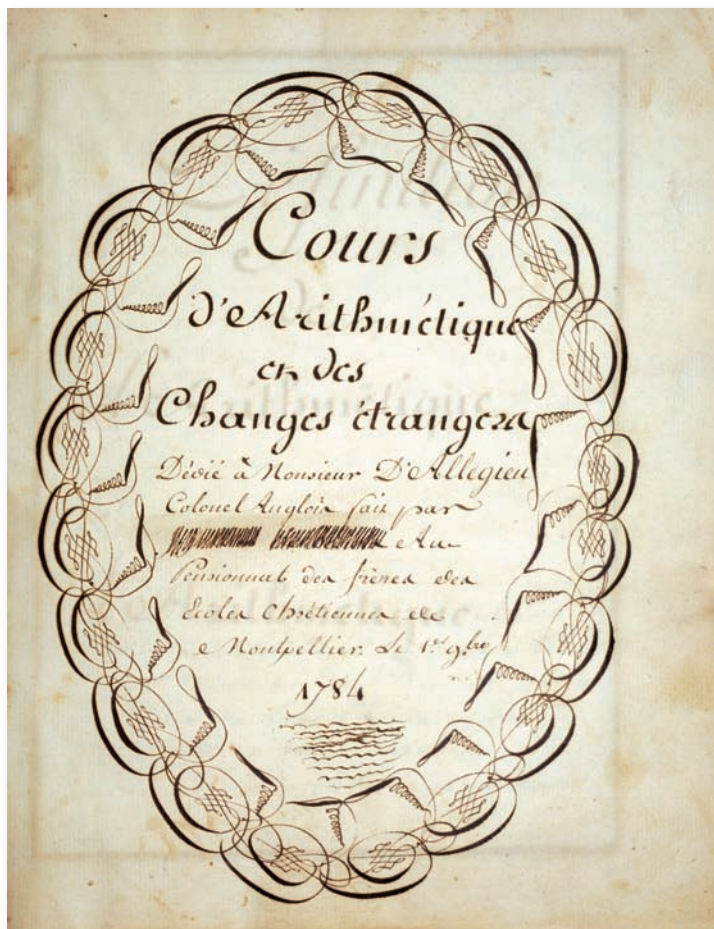 Cours
d'Arithmétique
et des
Changes étrangers
Dédié à Monsieur D'Allegien
Colonel Anglois fait par
Au
Pensionnat des frères des
Ecoles Chrétiennes de
Montpellier. Le 1er 9bre
1784